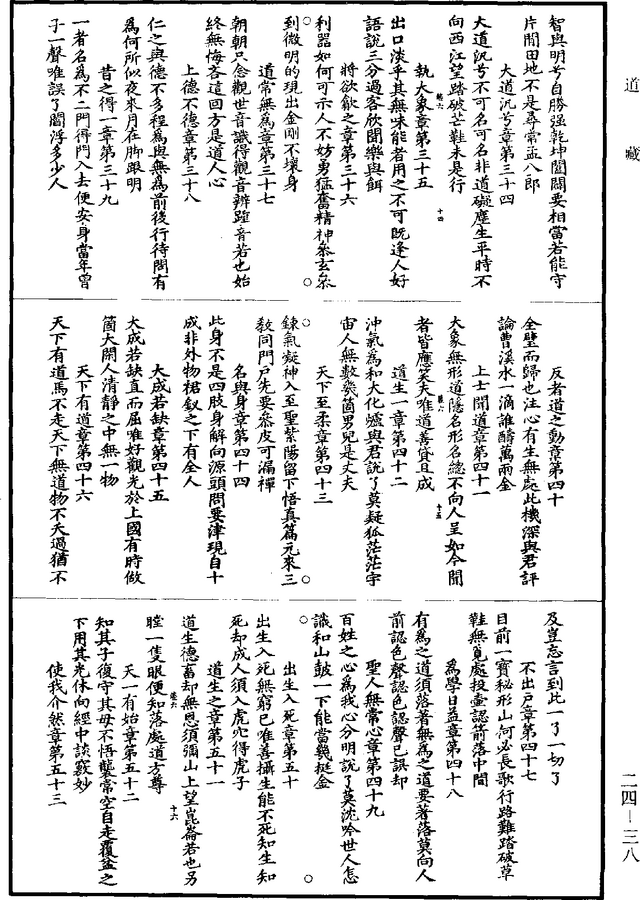 道藏
智與明兮自勝强乾坤闔闢要相當若能守
片閒田地不是尋常孟八郎
大道汎兮章第三十四
大道汎兮不可名可名非道礙塵生平時不
向西江望踏破芒鞋未是行
執大象章第三十五
出口淡乎其無味能者用之不可既逢人好
語說三分過客欣聞樂與餌
將欲歙之章第三十六
利器如何可示人不妨勇猛奮精神叅玄叅
到微明的現出金剛不壞身
道常無為章第三十七
朝朝只念觀世音識得觀音辨踪音若也始
終無悔吝這回方是道人心
上德不德章第三十八
仁之與德不多程為與無為前後行待問有
為何所似夜來月在脚跟明
昔之得一章第三十九
一者名為不二門得門入去便安身當年曾
子一聲唯誤了閻浮多少人
反者道之動章第四十
全璧而歸也注心有生無處此機深與君評
論曹溪水一滴誰酬萬兩金
上士聞道章第四十一
大象無形道隱名形名總不向人呈如今聞
者皆應笑夫唯道善貸且成
道生一章第四十二
沖氣為和大化爐與君說了莫疑狐茫茫宇
宙人無數幾箇男兒是丈夫
天下至柔章第四十三
鍊氣凝神入至聖紫陽留下悟真篇元來三
教同門戶先要叅皮可漏禪
名與身章第四十四
此身不是四肢身解向源頭問要津現自十
成非外物裙釵之下有全人
大成若缺章第四十五
大成若缺直而屈唯好觀光於上國有時做
箇大閑人清靜之中無一物
天下有道章第四十六
天下有道馬不走天下無道物不夭過猶不
及豈忘言到此一了一切了
不出戶章第四十七
目前一寶秘形山何必長歌行路難踏破草
鞋無覓處投壷認箭落中間
為學日益章第四十八
有為之道須落著無為之道要著落莫向人
前認色聲認色認聲已誤却
聖人無常心章第四十九
百姓之心為我心分明說了莫沈吟世人怎
識和山皷一下能當幾挺金
出生入死章第五十
出生入死無窮已唯善攝生能不死知生知
死却成人須入虎穴得虎子
道生之章第五十一
道生德畜却無恩須彌山上望崑崙若也另
瞠一隻眼便知落處道方尊
天下有始章第五十二
知其子復守其母不悟襲常空自走覆盆之
下用其光休向經中談竅妙
使我介然章第五十三
二四—三八